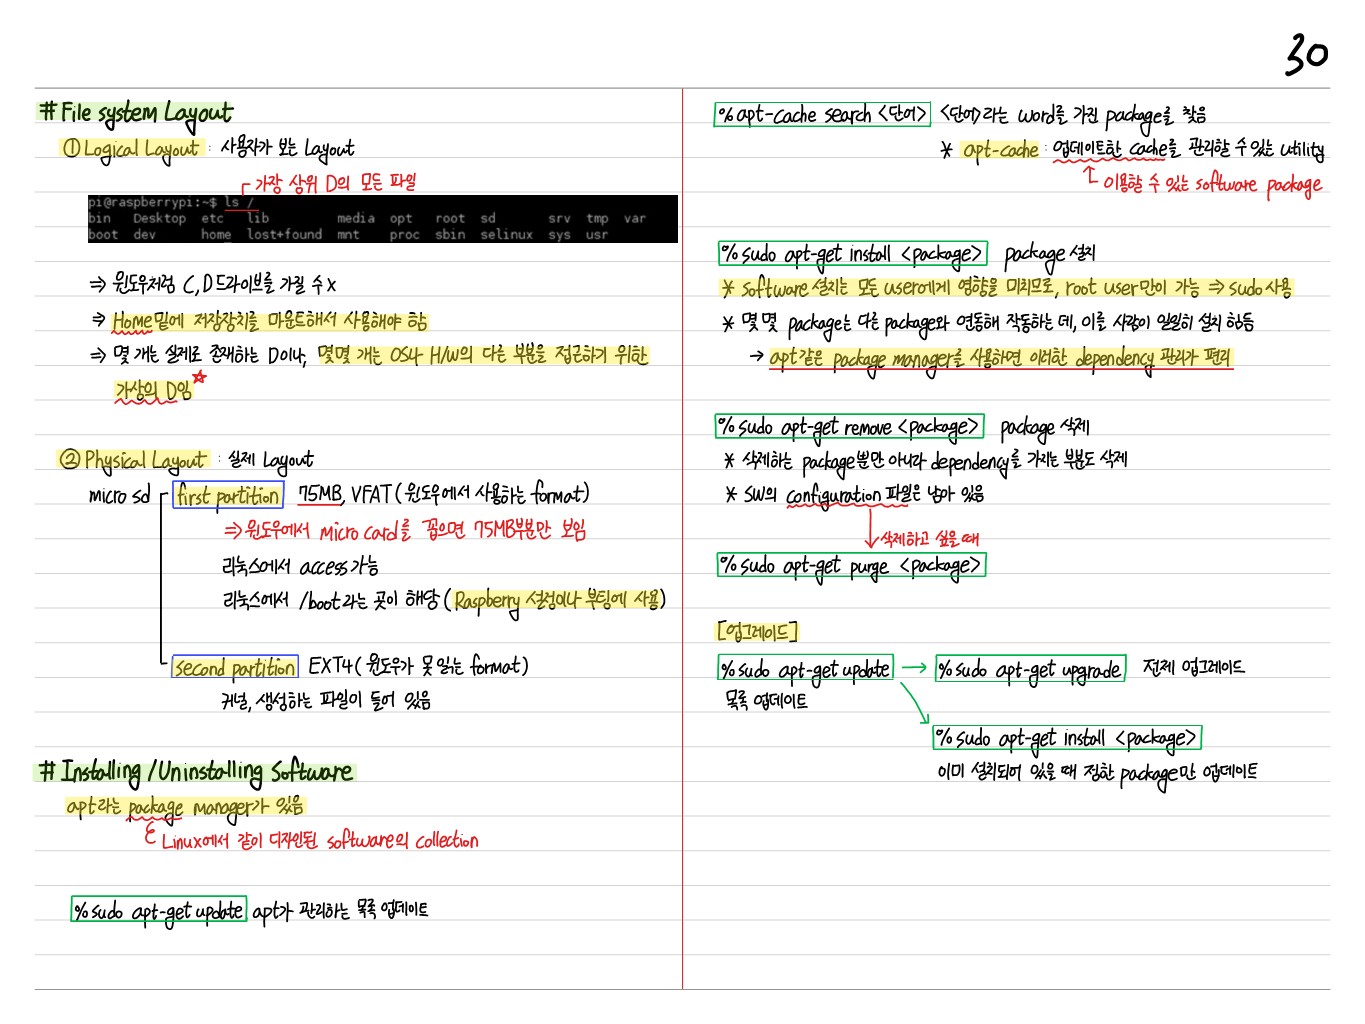 30
# File system Layout
① Logical Layout : 사용자가 보는 Layout
가장 상위 D의 모든 파일
pi@raspberrypi:~$ ls /
bin Desktop etc lib media opt root sd srv tmp var
boot dev home lost+found mnt proc sbin selinux sys usr
⇒ 윈도우처럼 C, D드라이브를 가질 수 x
⇒ Home밑에 저장장치를 마운트해서 사용해야 함
⇒ 몇 개는 실제로 존재하는 D이나, 몇몇 개는 OS나 H/W의 다른 부분을 접근하기 위한
가상의 D임 ☆
② Physical Layout : 실제 Layout
micro sd first partition 75MB, VFAT (윈도우에서 사용하는 format)
⇒ 윈도우에서 micro card를 꼽으면 75MB부분만 보임
리눅스에서 access가능
리눅스에서 /boot라는 곳이 해당 (Raspberry 설정이나 부팅에 사용)
second partition EXT4 (윈도우가 못 읽는 format)
커널, 생성하는 파일이 들어 있음
# Installing / Uninstalling Software
apt라는 package manager가 있음
Linux에서 같이 디자인된 software의 collection
% sudo apt-get update apt가 관리하는 목록 업데이트
% apt-cache search <단어> <단어>라는 word를 가진 package를 찾음
* apt-cache : 업데이트한 cache를 관리할 수 있는 utility
이용할 수 있는 software package
% sudo apt-get install <package> package 설치
* software 설치는 모든 user에게 영향을 미치므로, root user만이 가능 ⇒ sudo 사용
* 몇 몇 package는 다른 package와 연동해 작동하는 데, 이를 사람이 일일히 설치 힘듬
→ apt같은 package manager를 사용하면 이러한 dependency 관리가 편리
% sudo apt-get remove <package> package 삭제
* 삭제하는 package뿐만 아니라 dependency를 가지는 부분도 삭제
* SW의 configuration 파일은 남아 있음
삭제하고 싶을 때
% sudo apt-get purge <package>
[업그레이드]
% sudo apt-get update → % sudo apt-get upgrade 전체 업그레이드
목록 업데이트
% sudo apt-get install <package>
이미 설치되어 있을 때 정한 package만 업데이트